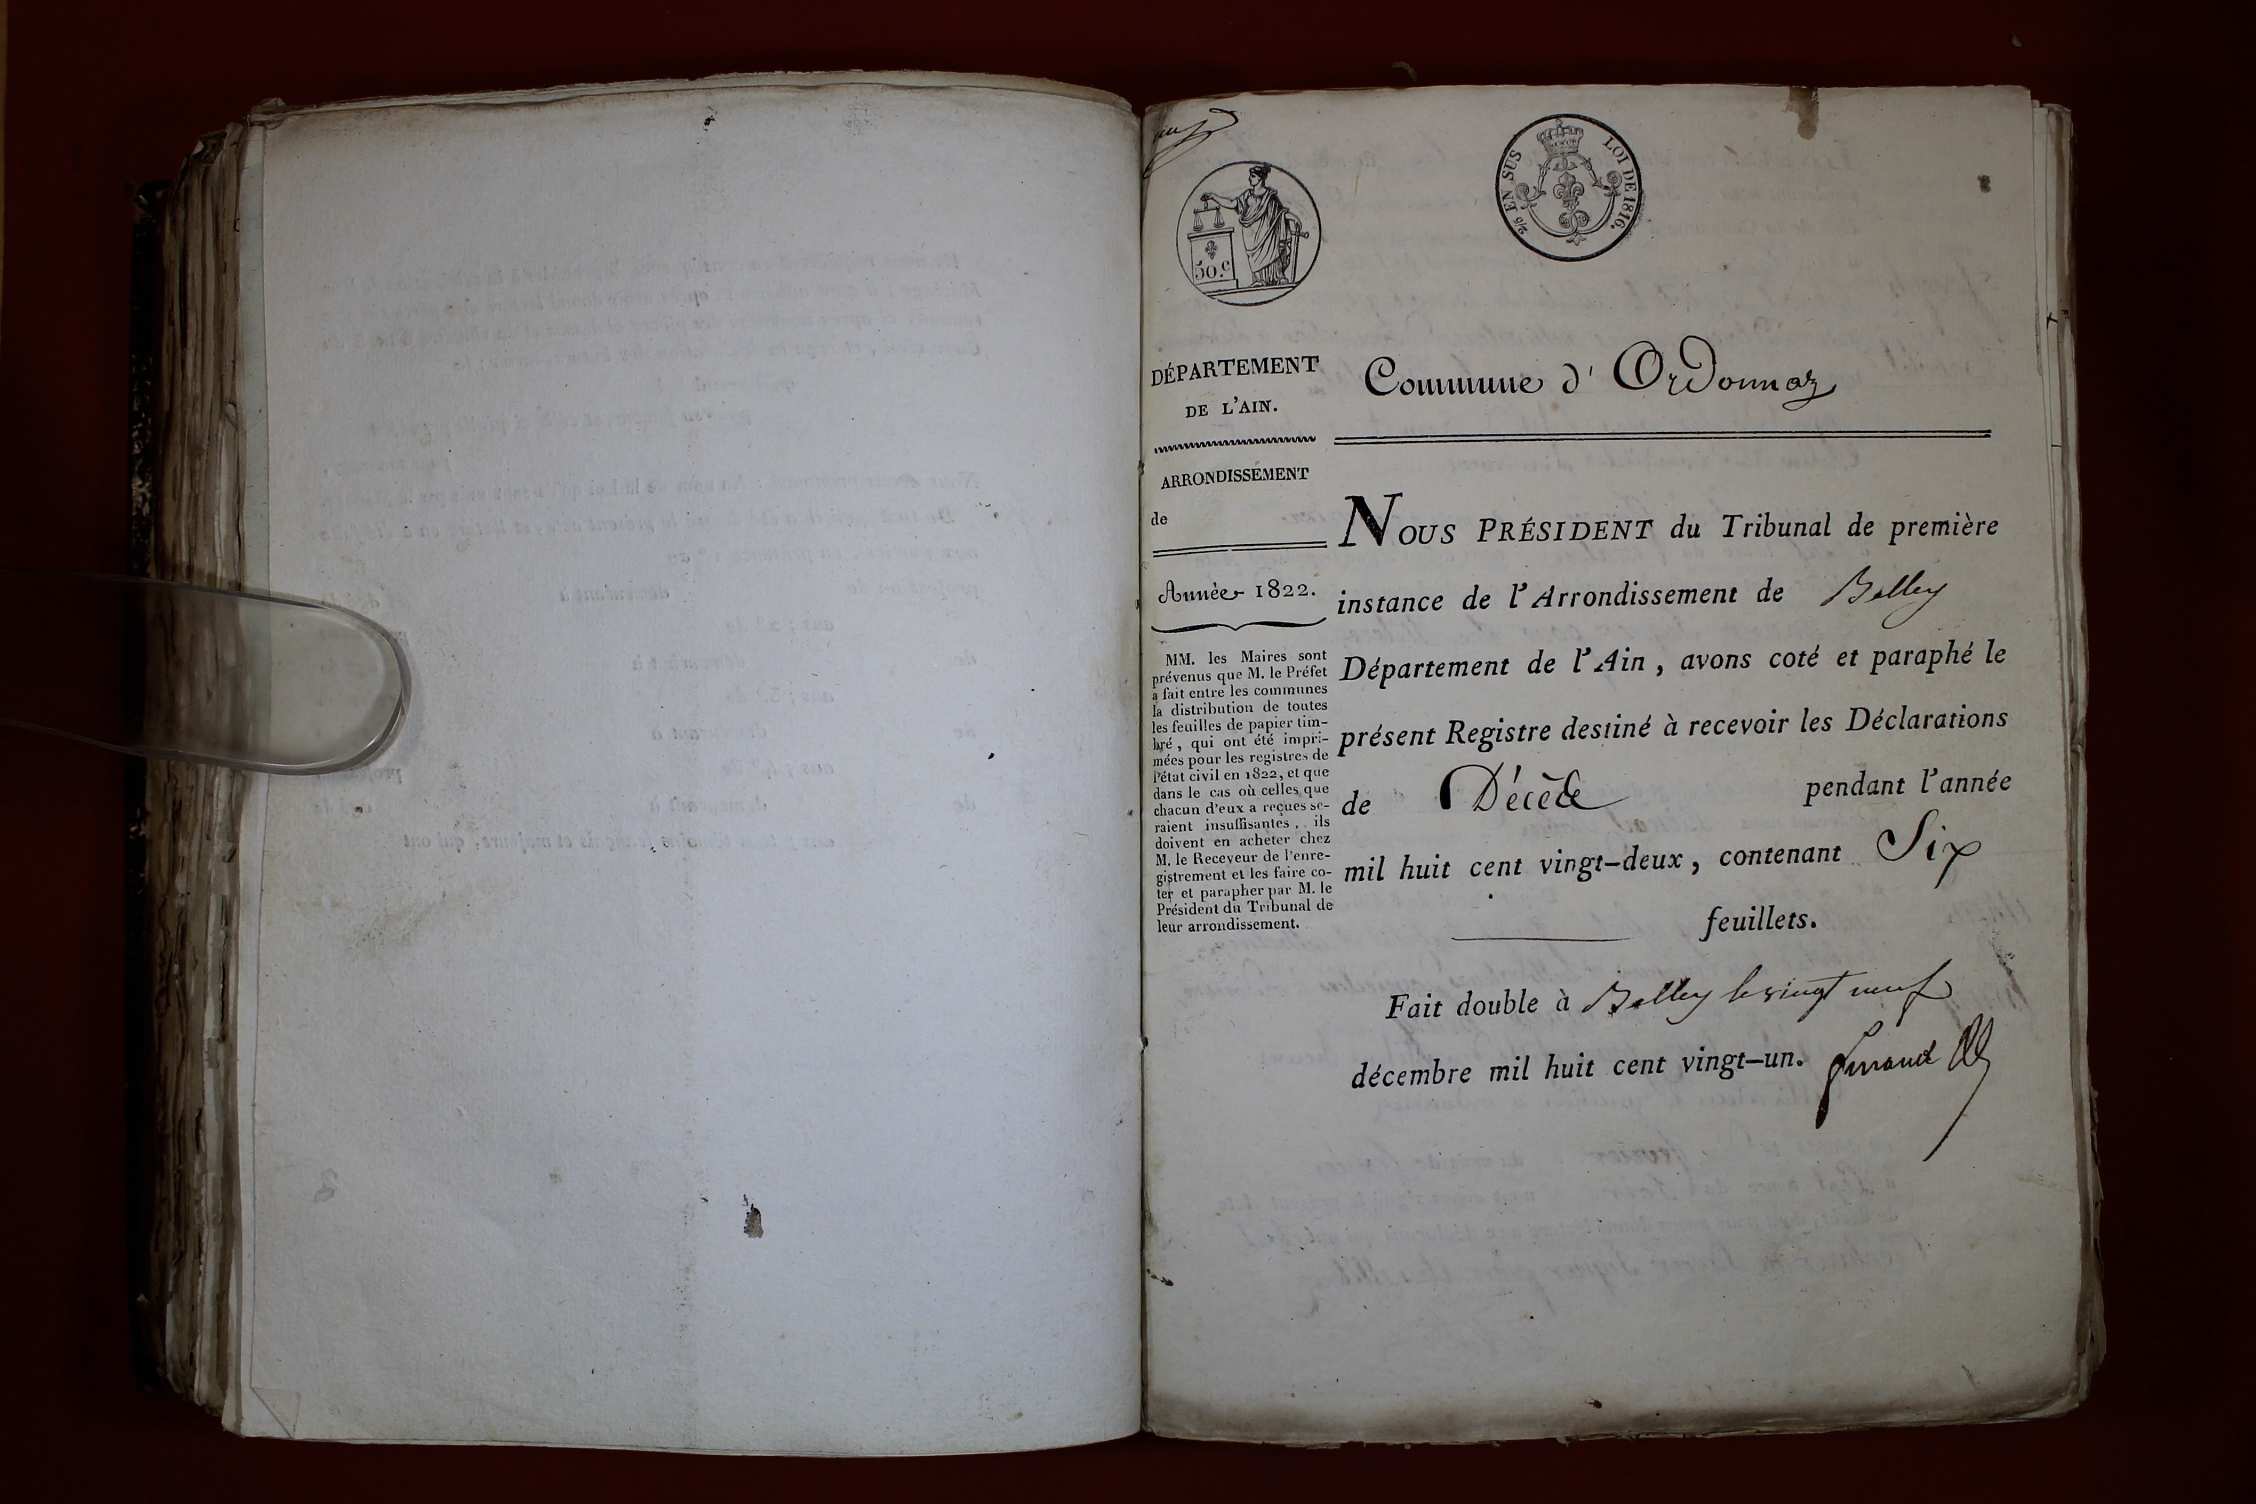 50.c
2/5 EN SUS LOI DE 1816.
DÉPARTEMENT
DE L'AIN.
ARRONDISSEMENT
de
Année 1822.
MM. les Maires sont
prévenus que M. le Préfet
a fait entre les communes
la distribution de toutes
les feuilles de papier tim-
bré, qui ont été impri-
mées pour les registres de
l'état civil en 1822, et que
dans le cas où celles que
chacun d'eux a reçues se-
raient insuffisantes, ils
doivent en acheter chez
M. le Receveur de l'enre-
gistrement et les faire co-
ter et parapher par M. le
Président du Tribunal de
leur arrondissement.
Commune d' Ordonnaz
NOUS PRÉSIDENT du Tribunal de première
instance de l'Arrondissement de Belley
Département de l'Ain, avons coté et paraphé le
présent Registre destiné à recevoir les Déclarations
de Décès pendant l'année
mil huit cent vingt-deux, contenant Six
feuillets.
Fait double à Belley le vingt neuf
décembre mil huit cent vingt-un.